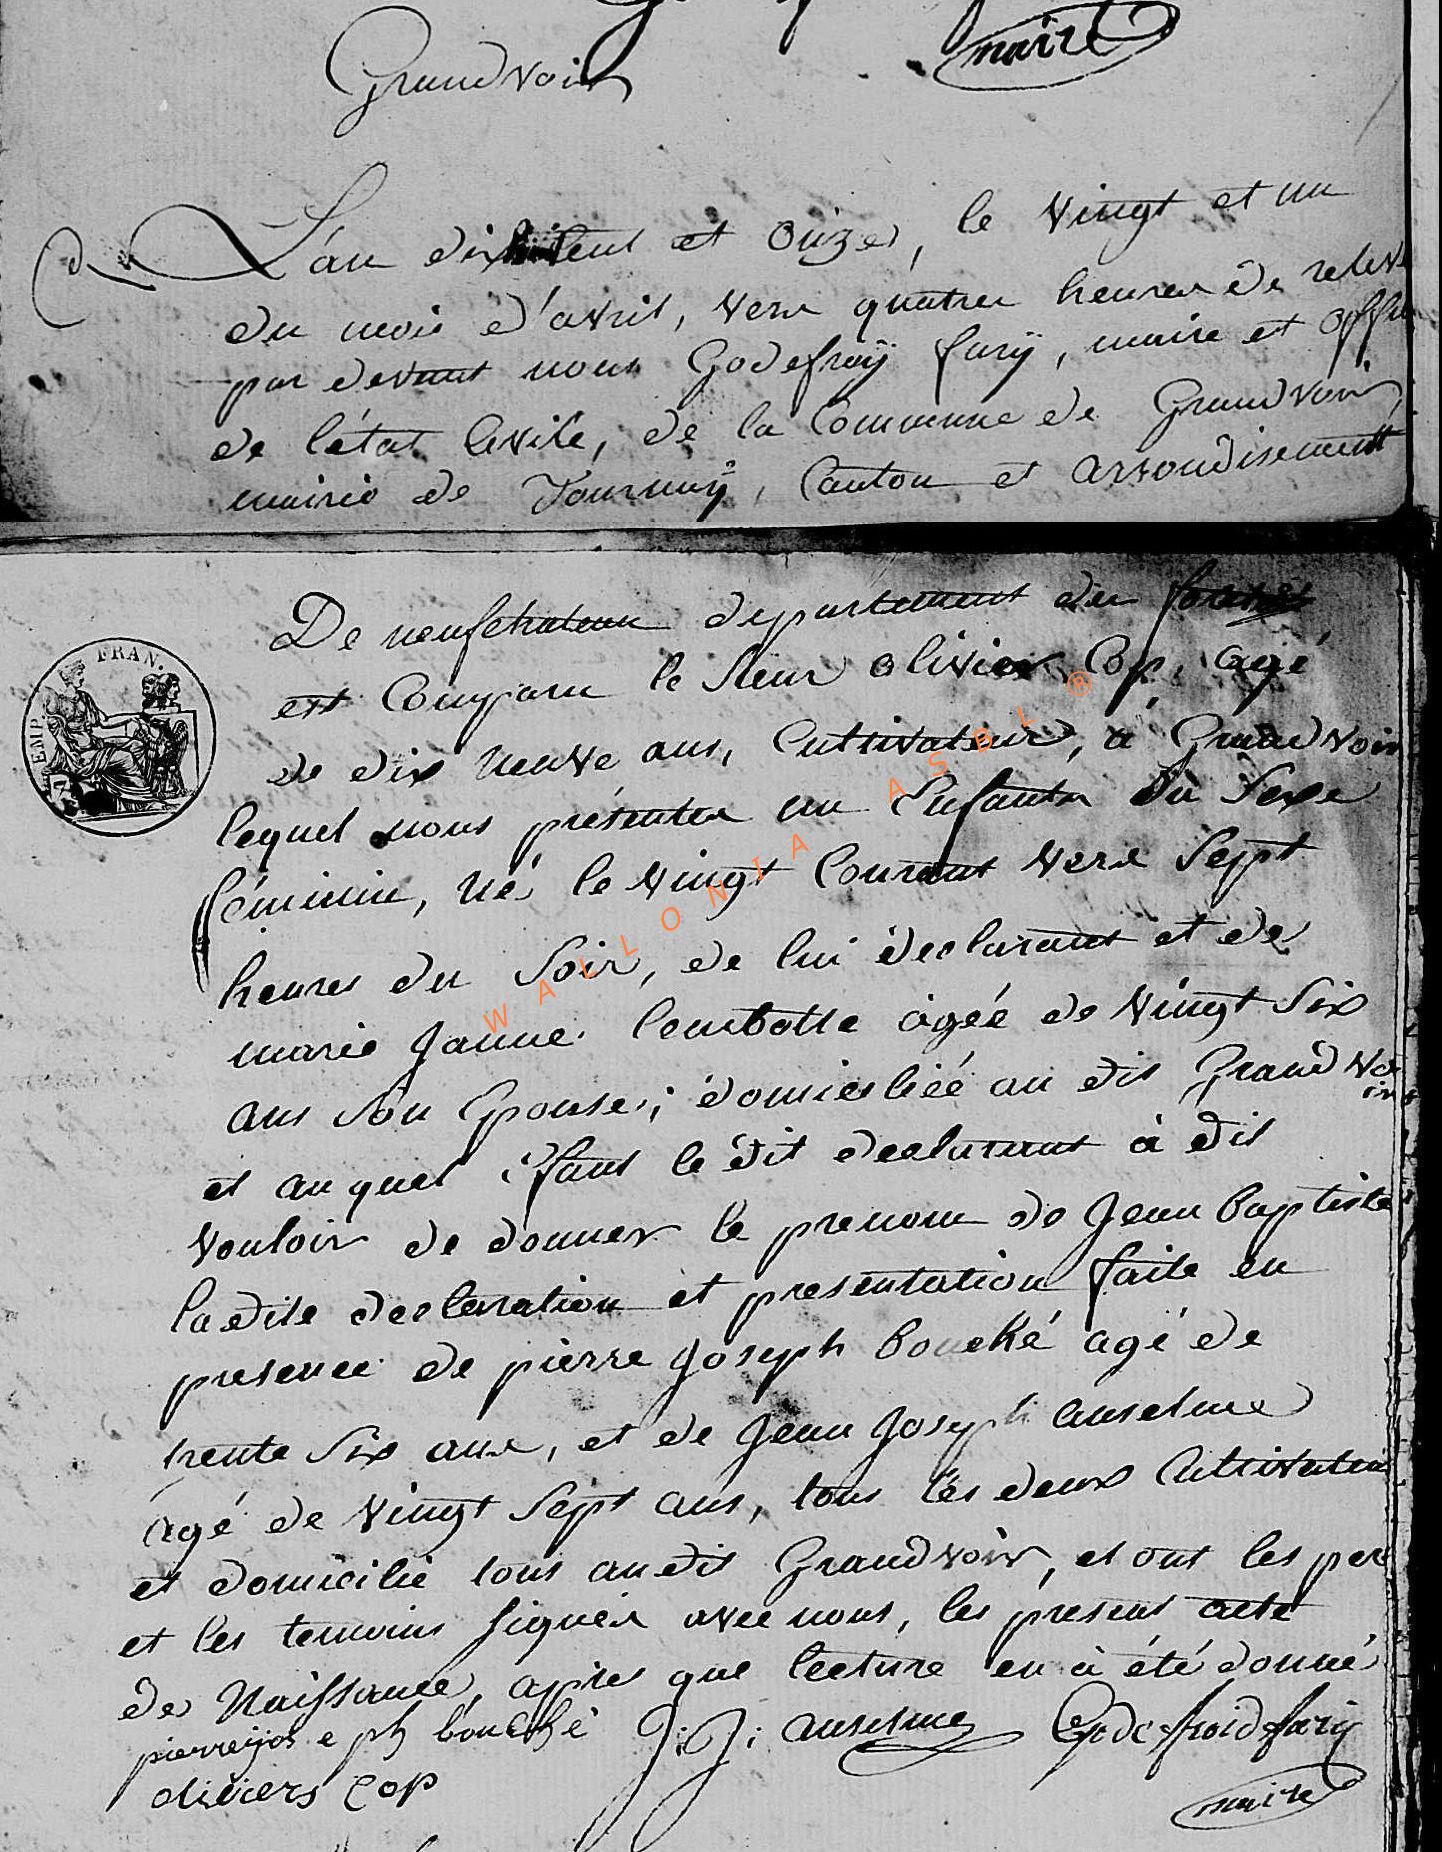 maire
Grandvoir
L'an dix huit cent et Onze, le vingt et un
du mois d'avril, vers quatre heures de relevé
par devant nous Godefroÿ farÿ, maire et offi
de l'état Civile, de la Commune de Grandvoir,
mairie de Tournaÿ, Canton et arrondisement
De neufchateau departement du forets
est Comparu le sieur olivier Cop, agé
de dix neuve ans, Cultivateur, à Grandvoir
lequel nous présenter un Enfants du Sexe
féminin, né le vingt Courant vers Sept
heures du Soir, de lui déclarant et de
marie Janne Lambotte àgéé de vingt Six
ans Son Epouse; domiciliéé au dit Grand vo
ir
et au quel Efant lé dit declarant à dit
vouloir de donner le prenom de Jean baptiste
la dite declaration et presentation faite en
presence de pierre Joseph bouché agé de
trente Six ans, et de Jean Joseph anselme
agé de vingt Sept ans, tous lés deux Cultivateu
et domicilié tous audit Grandvoir, et ont les per
et les temoins Signés avec nous, les présent acte
de Naissance, après que lecture en à été donné
pierre jos e ph bouché J: J: anselme Godefroid fary
oliviers cop maire
EMP. FRAN.
WALLONIA ASBL ®